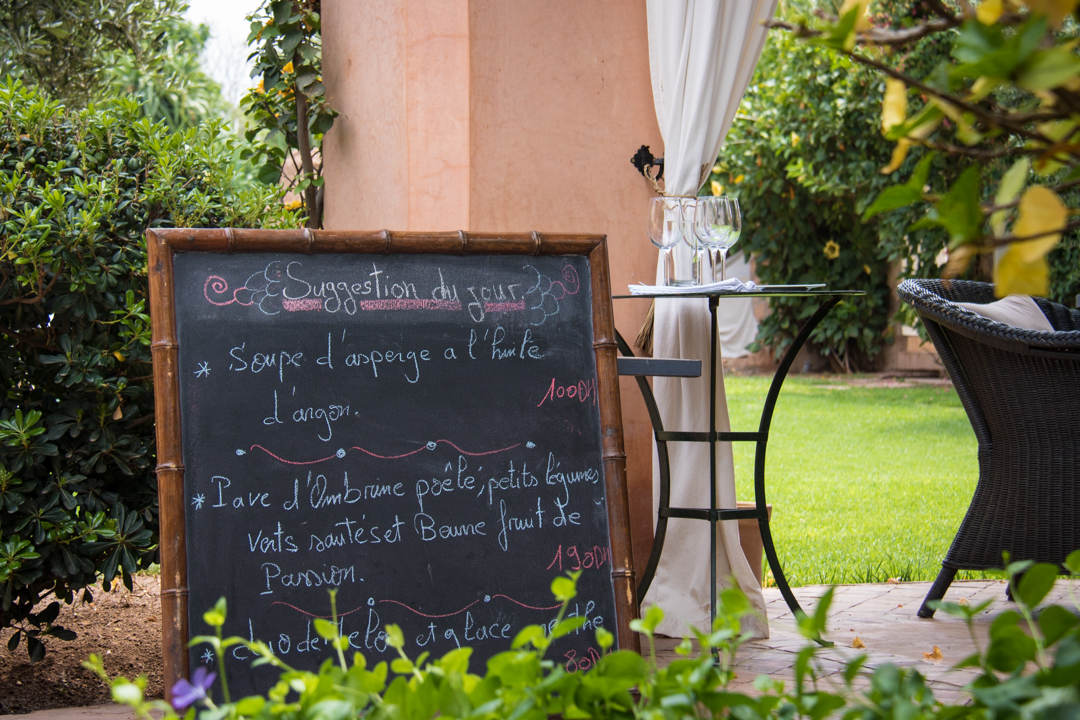 Suggestion du jour
* Soupe d'asperge a l'huile
d'argon.
100DH
* Pave d'Ombrine poêlé, petits légumes
verts sautés et Beurre fruit de
Passion.
190DH
* duo de et glace menthe
80D